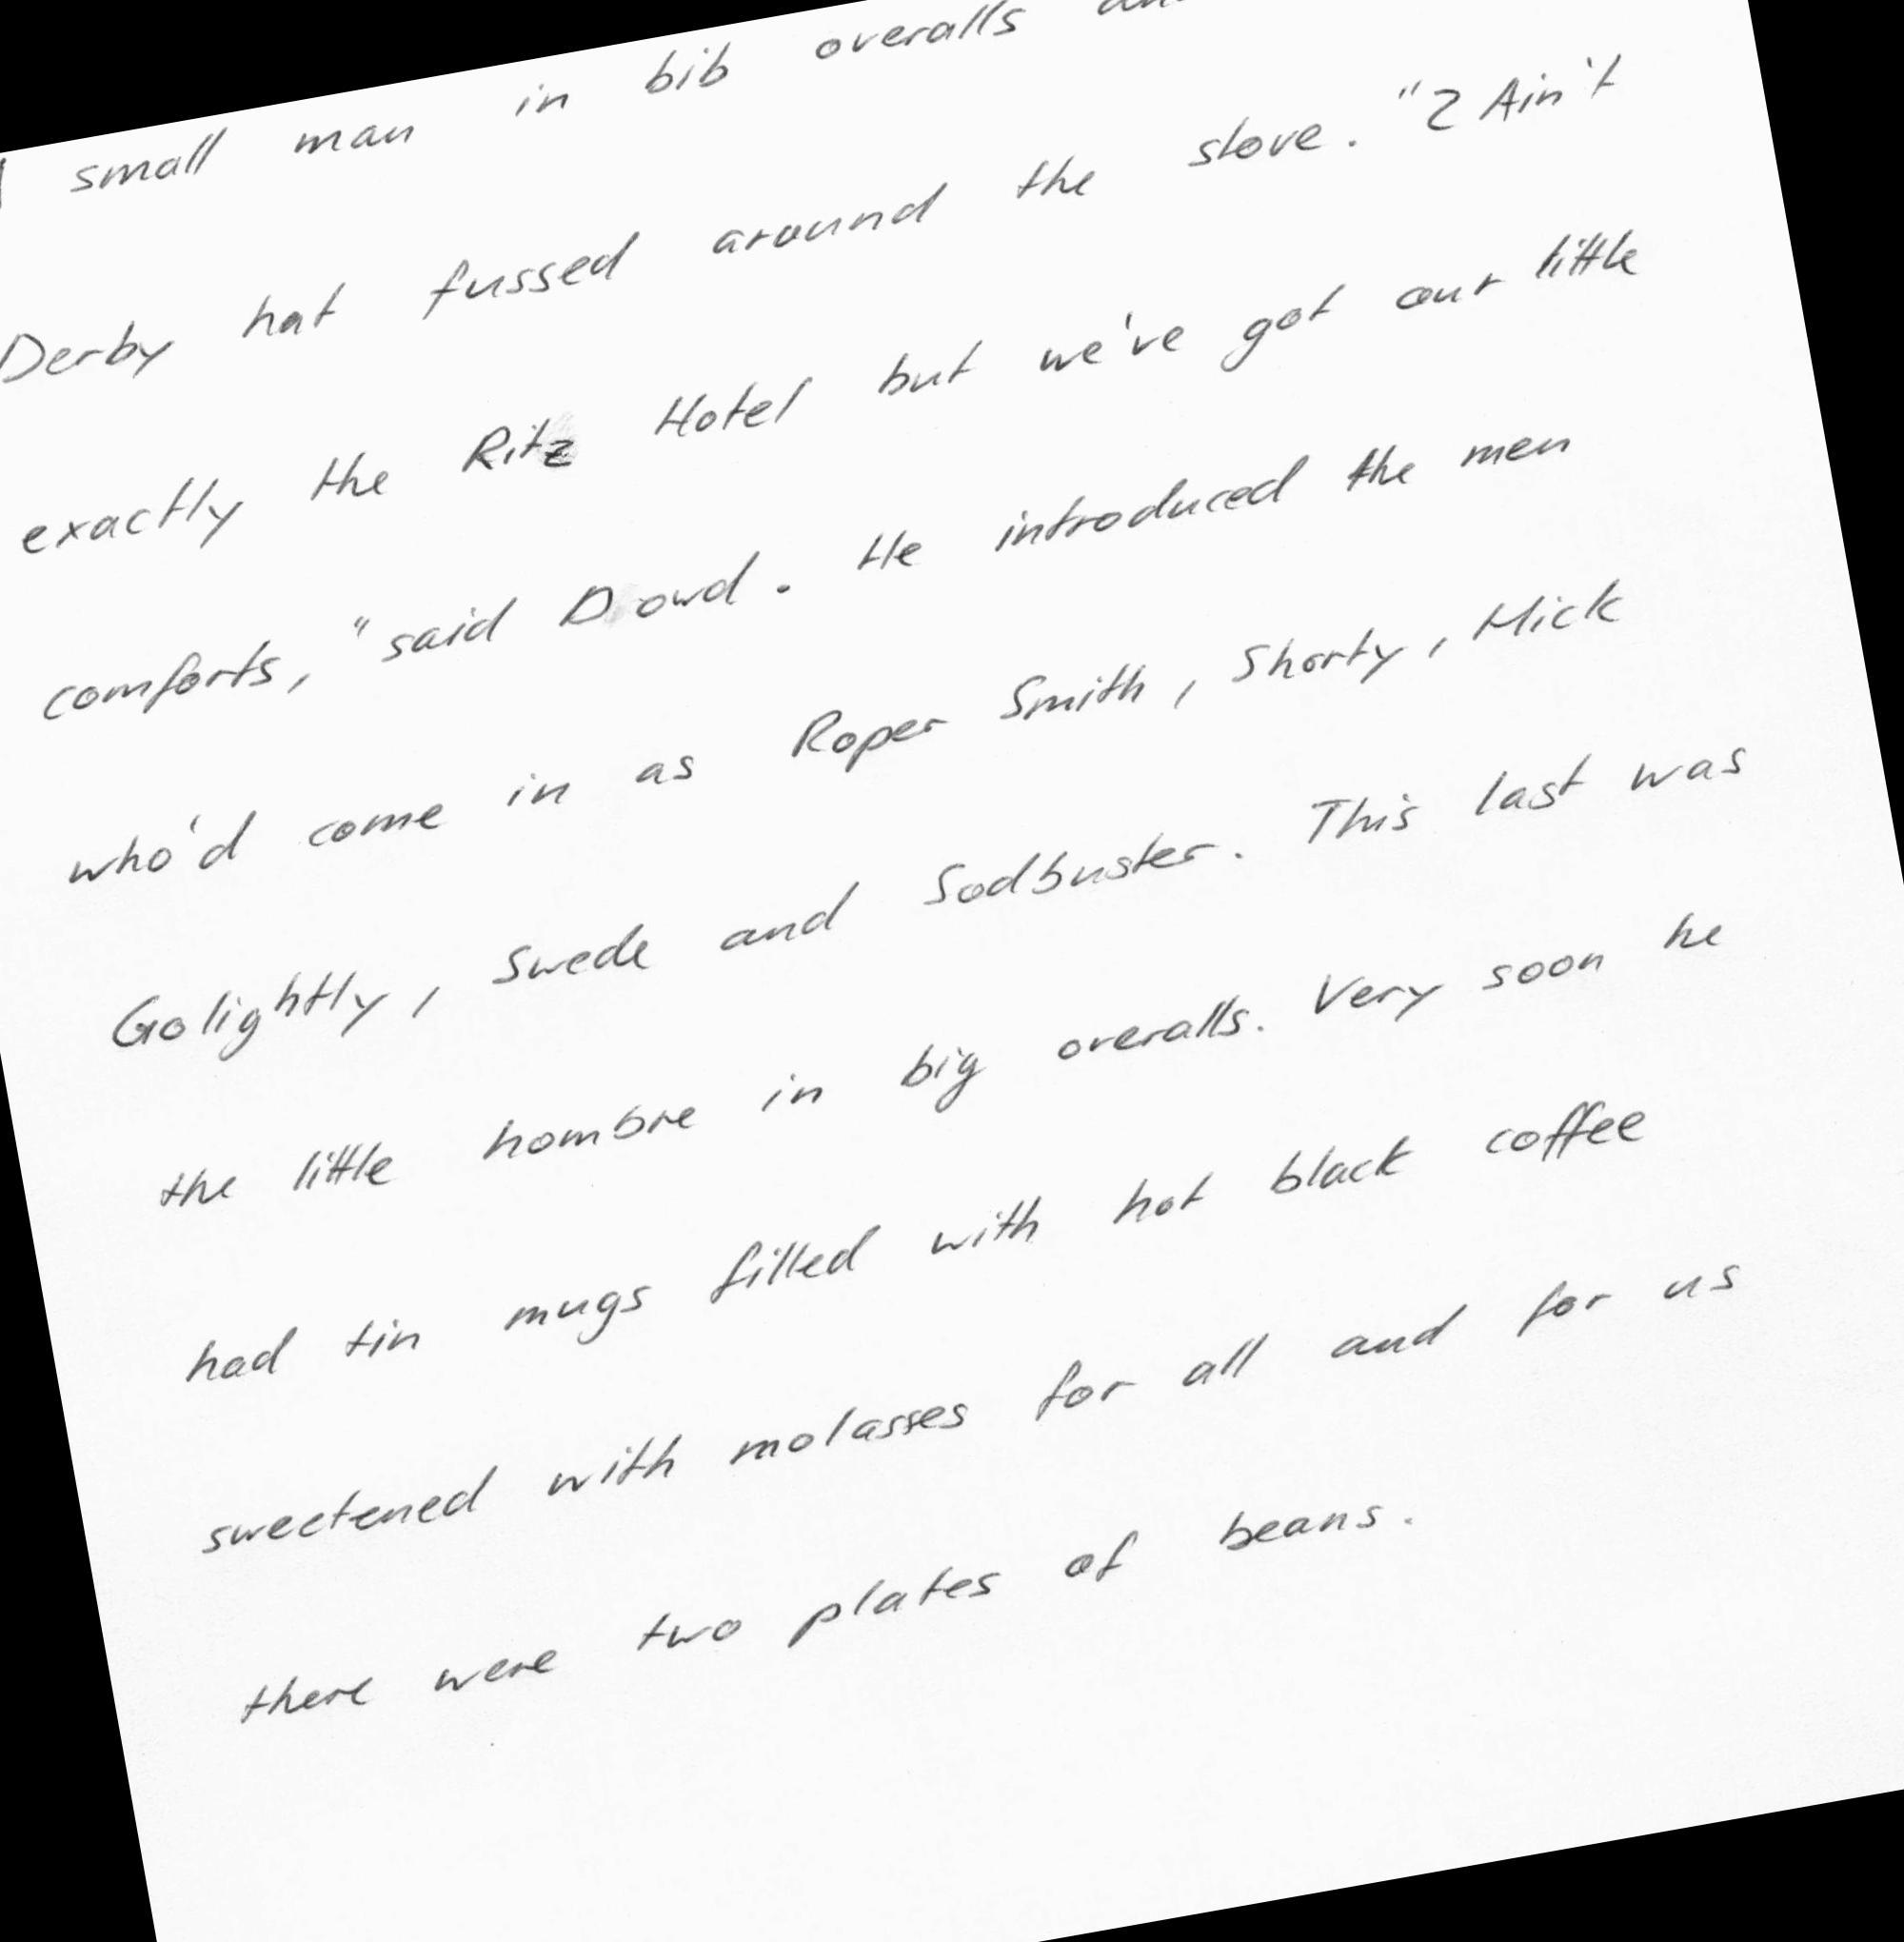 small man in bib overalls
Derby hat fussed around the stove. "2 Ain't
exactly the Ritz Hotel but we've got our little
comforts," said Dowd. He introduced the men
who'd come in as Roper Smith, Shorty, Mick
Golightly, Swede and Sodbuster. This last was
the little hombre in big overalls. Very soon he
had tin mugs filled with hot black coffee
sweetened with molasses for all and for us
there were two plates of beans.